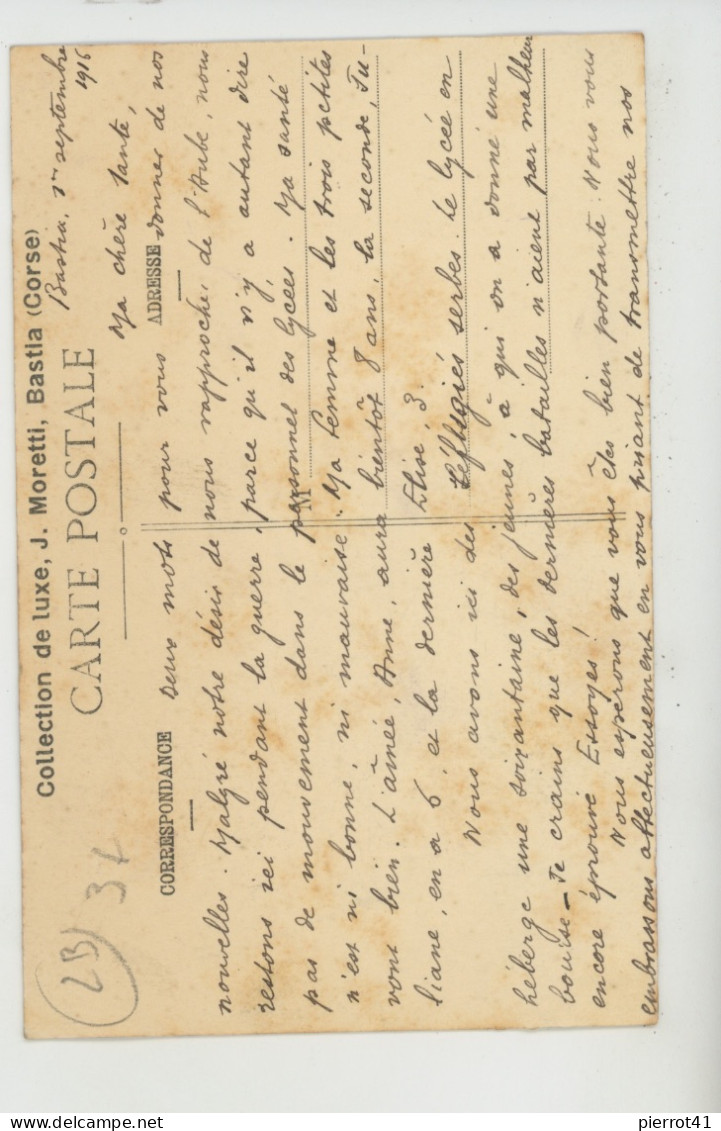 Collection de luxe, J. Moretti, Bastia (Corse)
CARTE POSTALE
CORRESPONDANCE
ADRESSE
M
2B
37
Bastia, septembre
1916
Ma chère tante,
Deux mots pour vous donner de nos
nouvelles. Malgré notre désir de nous rapprocher de l'Aube, nous
restons ici pendant la guerre, parce qu'il n'y a autant dire
pas de mouvement dans le personnel des lycées. Ma santé
n'est ni bonne, ni mauvaise. Ma femme et les trois petites
vont bien. L'aînée, Anne, aura bientôt 8 ans, la seconde, Ju-
liane, en a 6, et la dernière Elise, 3.
Nous avons ici des réfugiés serbes. Le lycée en
héberge une soixantaine, des jeunes, à qui on a donné une
bourse - Je crains que les dernières batailles n'aient par malheur
encore éprouvé Essoyes!
Nous espérons que vous êtes bien portante. Nous vous
embrassons affectueusement en vous priant de transmettre nos
pierrot41